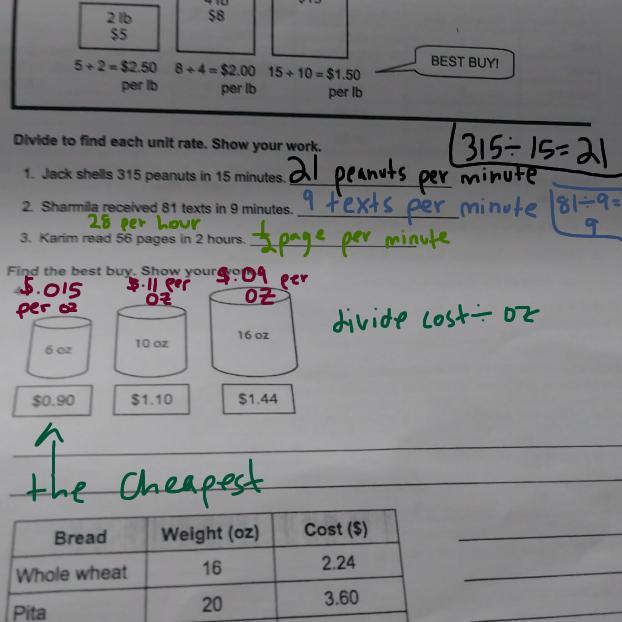 2 lb
$5
$8
5 ÷ 2 = $2.50
per lb
8 ÷ 4 = $2.00
per lb
15 ÷ 10 = $1.50
per lb
BEST BUY!
Divide to find each unit rate. Show your work.
315 ÷ 15 = 21
1. Jack shells 315 peanuts in 15 minutes. 21 peanuts per minute
2. Sharmila received 81 texts in 9 minutes. 9 texts per minute
81 ÷ 9 =
9
28 per hour
3. Karim read 56 pages in 2 hours. ½ page per minute
Find the best buy. Show your work.
$.015
per oz
$.11 per
oz
$.09 per
oz
divide cost ÷ oz
6 oz
10 oz
16 oz
$0.90
$1.10
$1.44
the cheapest
Bread Weight (oz) Cost ($)
Whole wheat 16 2.24
Pita 20 3.60